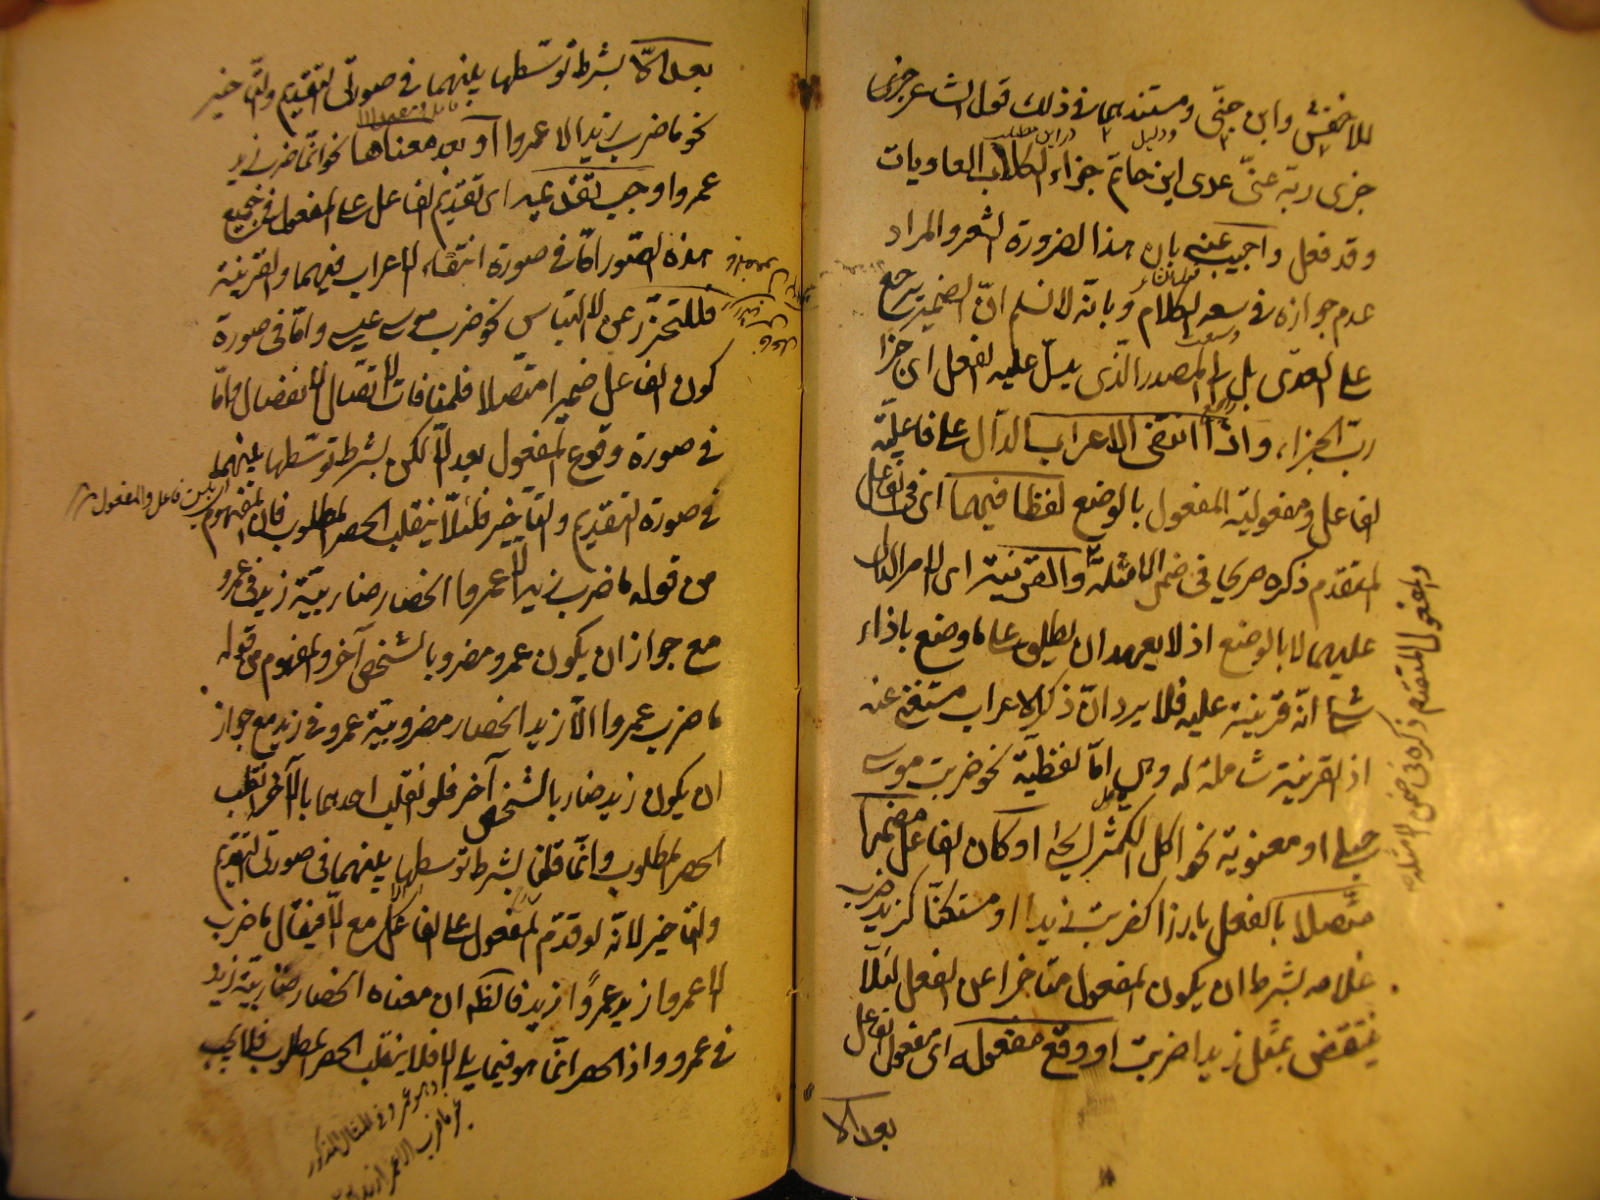 للاخفش وابن جنّي ومستندهما في ذلك قول الشاعر جزى
جزى ربّه عنّي عدى ابن حاتم جزاء الكلاب العاويات
وقد فعل واجيب عنه بان هذا لضرورة الشعر والمراد
عدم جوازه في سعة الكلام وبانّه لا نسلم انّ الضمير يرجع
على العدّى بل الى المصدر الذّى يدلّ عليه الفعل اى جزا
ربّ الجزاء، واذا انتفى الاعراب الدّال على فاعليّة
الفاعل ومفعوليّة المفعول بالوضع لفظا فيهما اى فى الفاعل
المتقدّم ذكره صريحا في ضمن الامثلة والقرينة اى الامر الدّال
عليهما لا بالوضع اذ لا يعهد ان يطلق على ما وضع باذاء
شئ انّه قرينة عليه فلا يرد انّ ذكر الاعراب مستغنى عنه
اذ القرينة شاملة له وهى امّا لفظيّة نحو ضربت موسى
حبلى او معنوية نحو اكل الكمثرى يحيى او كان الفاعل مضمرا
متّصلا بالفعل بارزا كضربت زيدا او مستكنّا كزيد ضرب
غلامه بشرط ان يكون المفعول متاخرا عن الفعل لئلّا
ينتقض بمثل زيدا ضربت او وقع مفعوله اى مفعول الفاعل
بعد الا
والمفعول المتقدم ذكره في ضمن الامثلة
بعد الّا بشرط توسّطها بينهما في صورتى التقديم والتّاخير
نحو ما ضرب زيد الا عمروا او بعد معناها نحو انّما ضرب زيد
عمروا وجب تقديمه اى تقديم الفاعل على المفعول في جميع
هذه الصّور امّا في صورة انتفاء الاعراب فيهما والقرينة
فللتحرّز عن الالتباس نحو ضرب موسى عيسى وامّا فى صورة
كون الفاعل ضميرا متّصلا فلمنافات الاتّصال الانفصال وامّا
في صورة وقوع المفعول بعد الّا لكن بشرط توسّطها بينهما
في صورة التقديم والتّاخير فلئلّا ينقلب الحصر المطلوب فان المفهوم
من قوله ما ضرب زيد الا عمروا انحصار ضاربيّة زيد في عمرو
مع جواز ان يكون عمرو مضروبا لشخص آخر والمفهوم من قوله
ما ضرب عمروا الّا زيد انحصار مضروبيّة عمرو في زيد مع جواز
ان يكون زيد ضاربا لشخص آخر فلو انقلب احدهما بالآخر انقلب
الحصر المطلوب وانّما قلنا بشرط توسطها بينهما فى صورتى التقديم
والتاخير لانّه لو قدّم المفعول على الفاعل مع الّا فيقال ما ضرب
الا عمروا زيد فالظّ ان معناه انحصار ضاربيّة زيد
في عمرو واذ الحصر انّما هو فيما يلى الا فلا ينقلب الحصر المطلوب فلا يجب
وهو عمرو في المثال المذكور